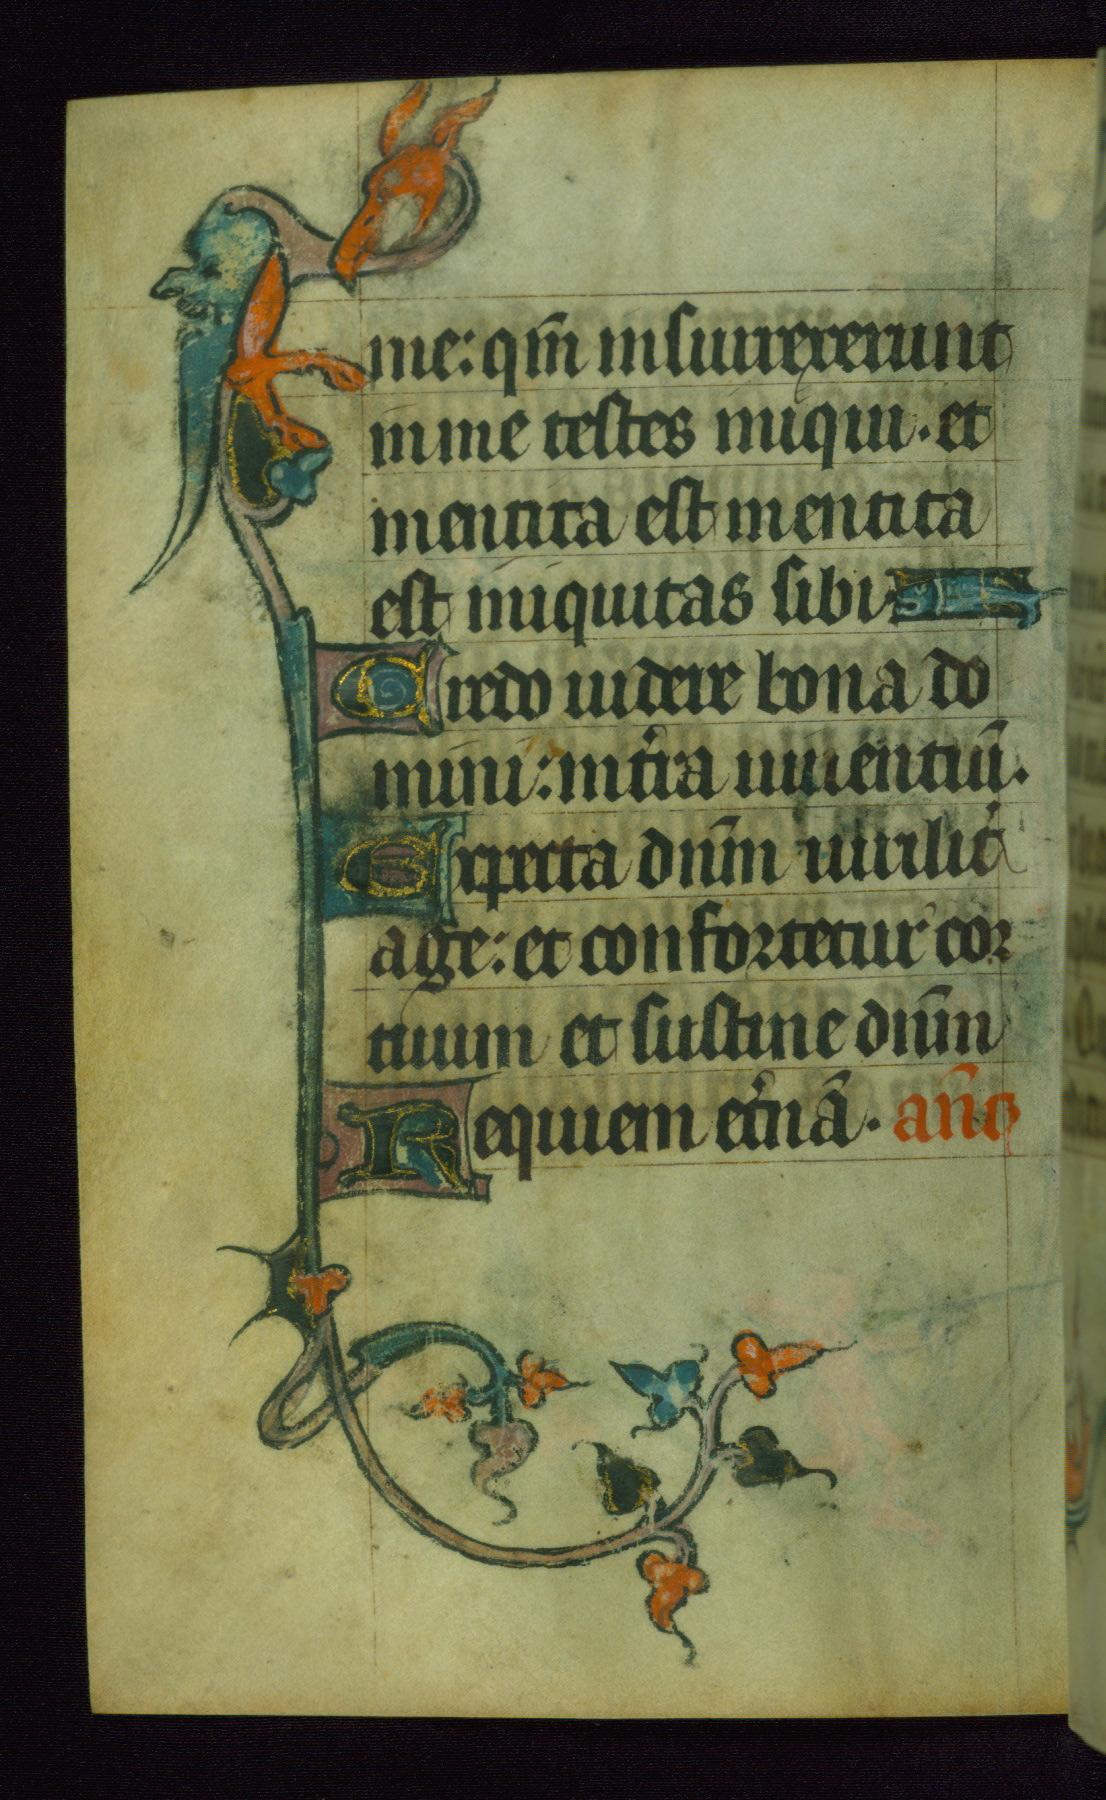 me: qm̄ insurrexerunt
in me testes iniqui. et
mentita est mentita
est iniquitas sibi
Credo uidere bona do
mini: in t̉ra uiuentiū.
Expecta dnm̄ uirilit̉
age: et confortetur cor
tuum et sustine dnm̄
Requiem et̉nā. an̄a